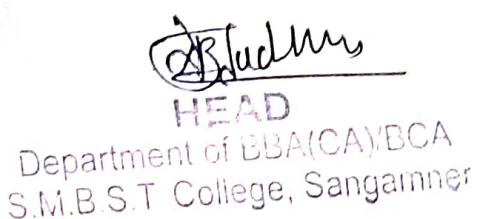 HEAD
Department of BBA(CA)/BCA
S.M.B.S.T College, Sangamner